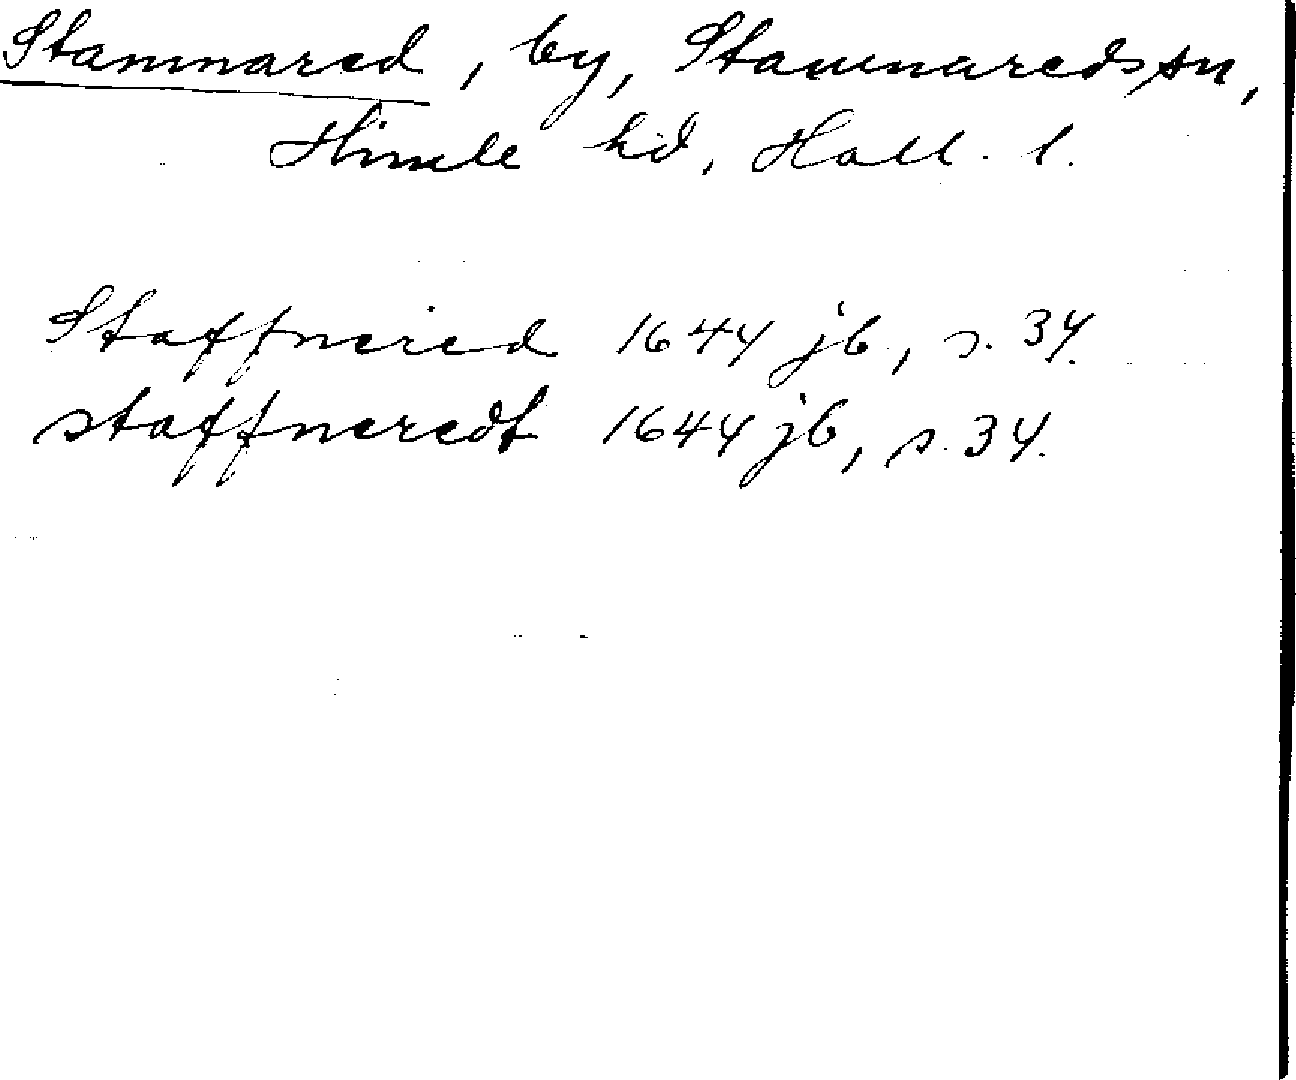 Stamnared, by, Stamnareds sn,
Himle hd, Hall. l.
Staffnered 1644 jb, s. 34.
staffneredt 1644 jb, s. 34.